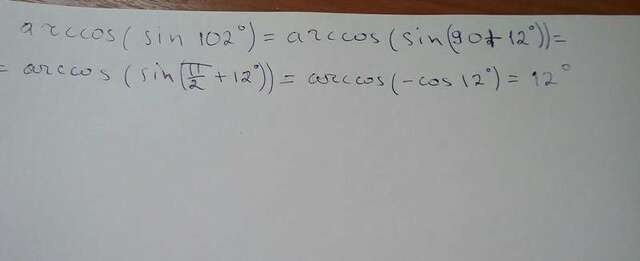 arccos(sin 102°) = arccos(sin(90+12°)) =
= arccos (sin(π/2 + 12°)) = arccos(-cos 12°) = 12°